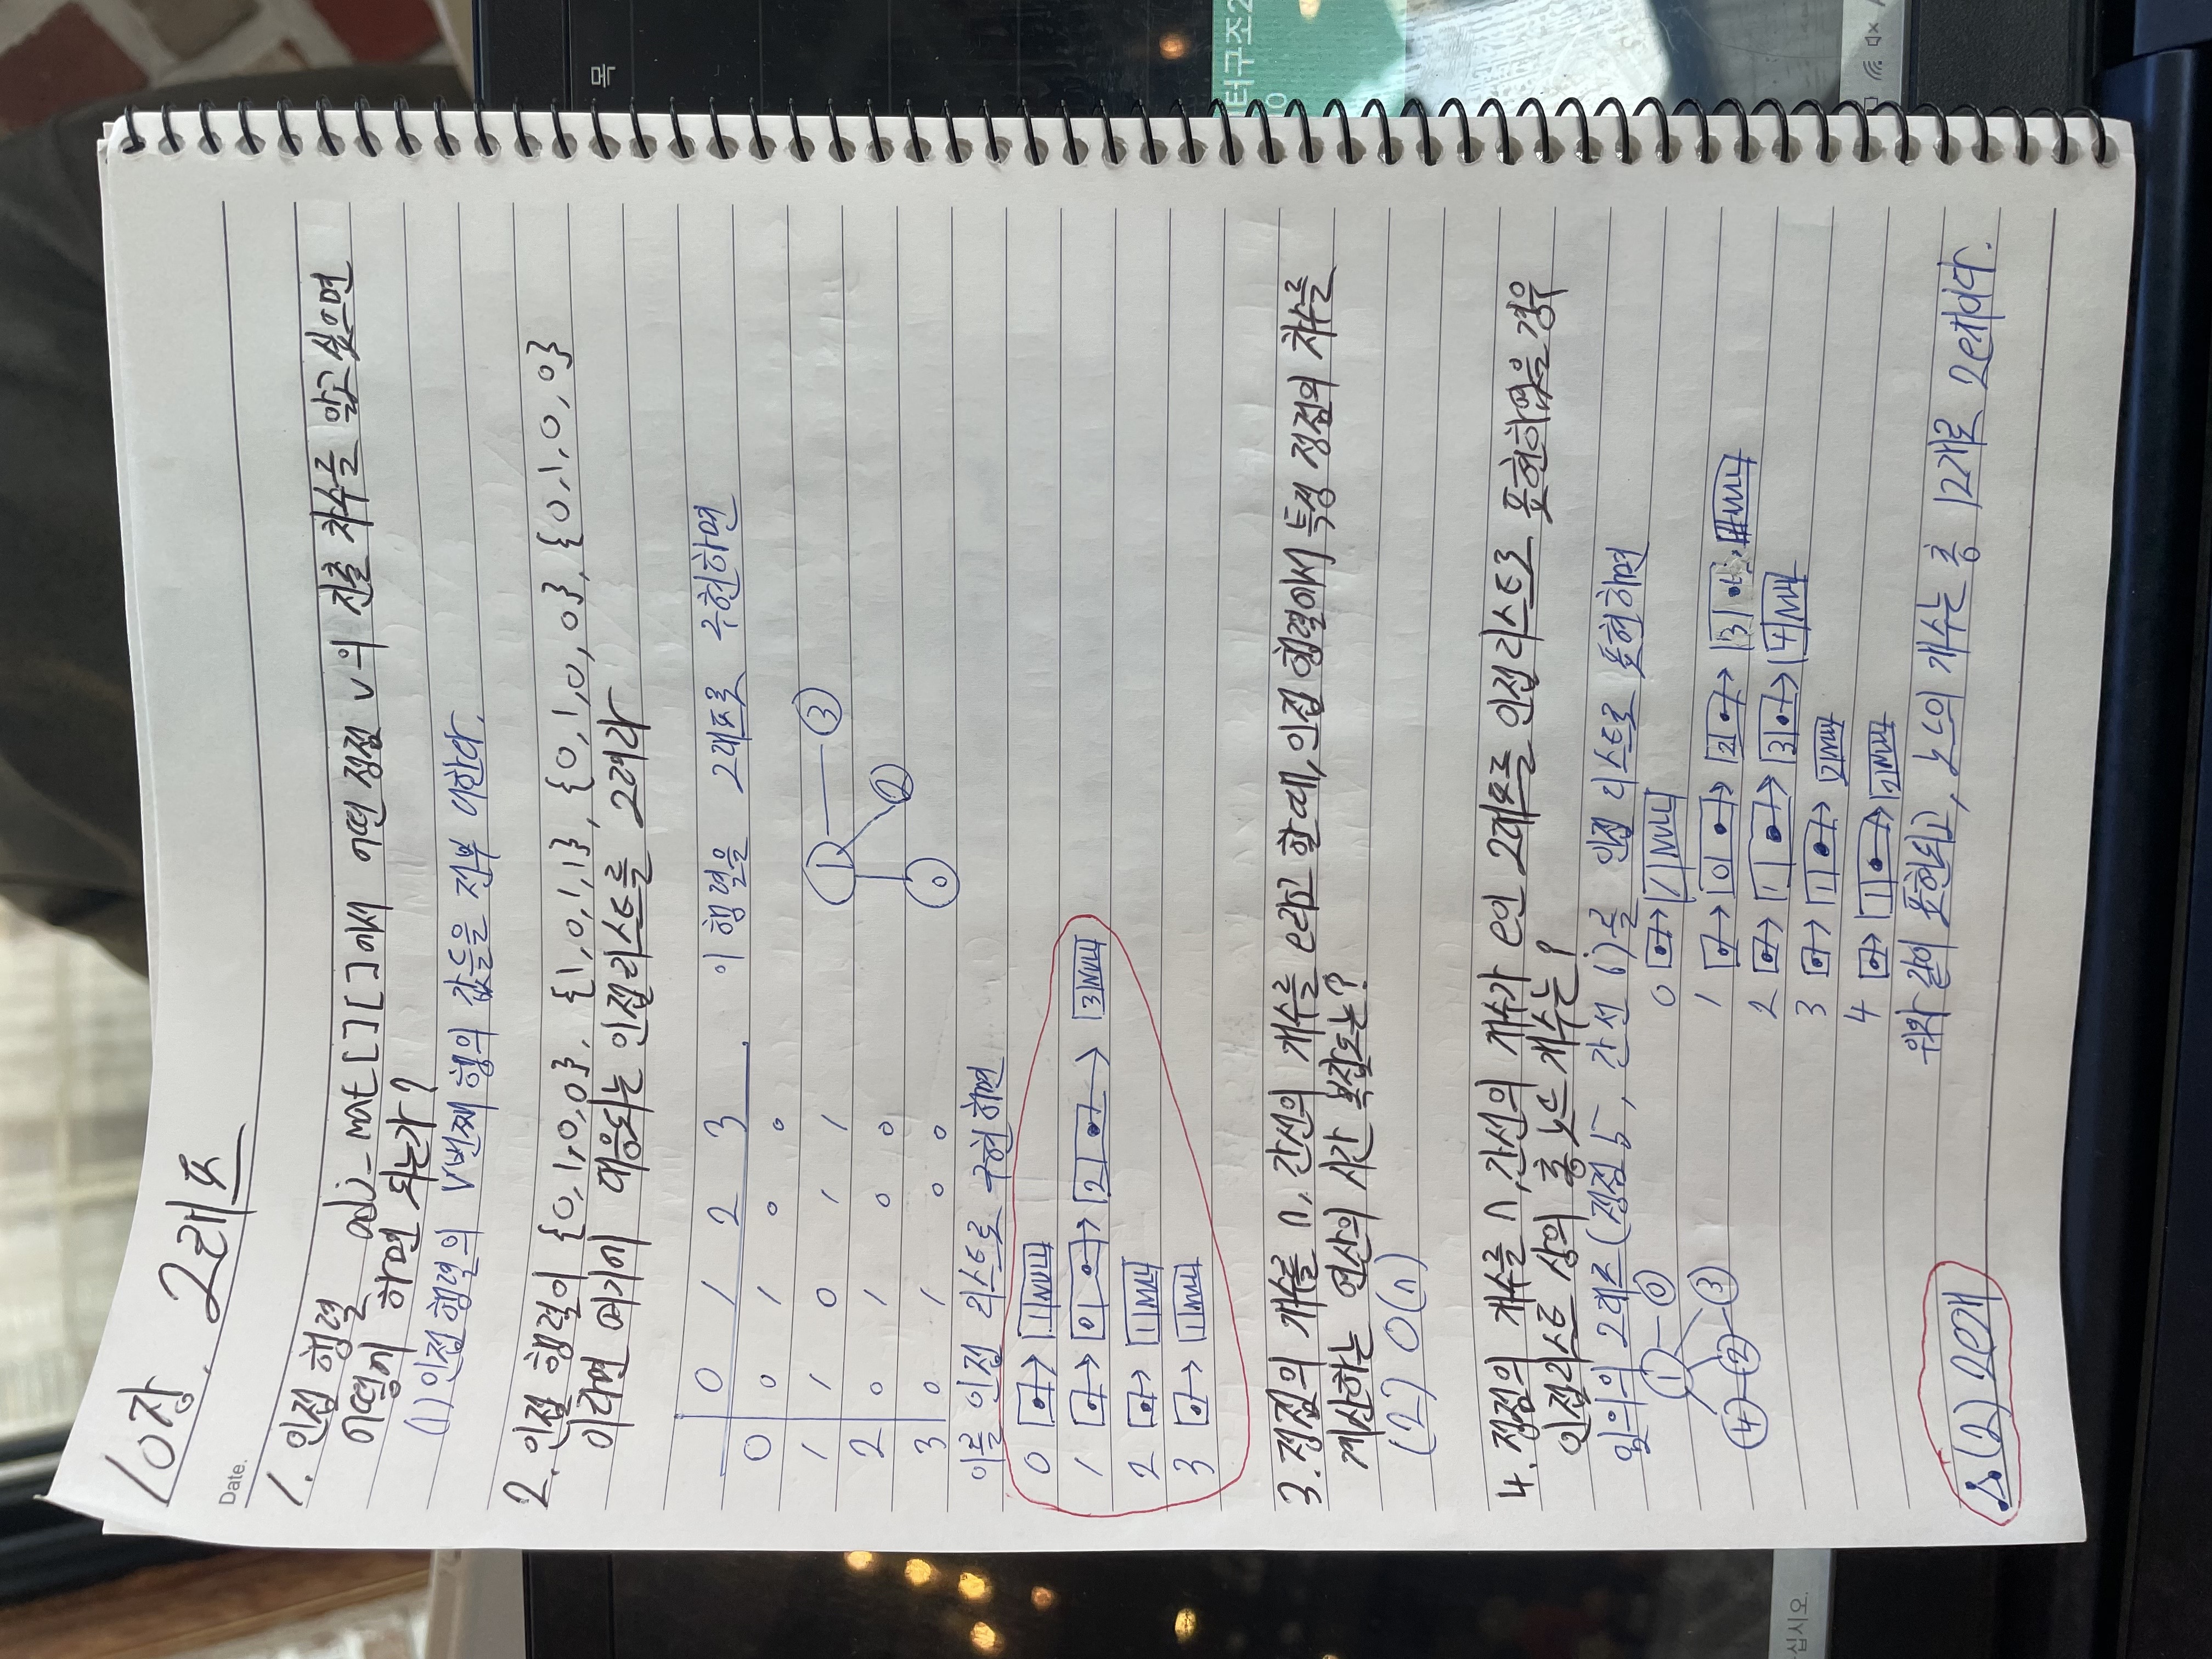 10장. 그래프
Date.
1. 인접 행렬 adj_mat[][]에서 어떤 정점 v의 진출 차수를 알고 싶으면
어떻게 하면 되는가?
(1) 인접행렬의 v번째 행의 값들을 전부 더한다.
2. 인접 행렬이 {0,1,0,0}, {1,0,1,1}, {0,1,0,0}, {0,1,0,0}
이라면 여기에 대응되는 인접리스트를 그려라
0 1 2 3 이 행렬을 그래프로 구현하면
0 0 1 0 0
1 1 0 1 1
2 0 1 0 0
3 0 1 0 0
1 3
2
0
이를 인접 리스트로 구현하면
0 1 NULL
1 0 2 3 NULL
2 1 NULL
3 1 NULL
3. 정점의 개수를 n, 간선의 개수를 e라고 할 때, 인접 행렬에서 특정 정점의 차수를
계산하는 연산의 시간 복잡도는?
(2) O(n)
4. 정점의 개수를 n, 간선의 개수가 e인 그래프를 인접리스트로 표현하였을 경우
인접리스트 상의 총 노드 개수는?
임의의 그래프(정점 5, 간선 6)를 인접 리스트로 표현하면
1 0
3
4 2
0 1 NULL
1 0 2 3 NULL
2 1 3 4 NULL
3 1 2 NULL
4 1 2 NULL
위와 같이 표현되고, 노드의 개수는 총 12개로 2e개이다.
∴ (2) 2e개
목
터구조2
십시오.